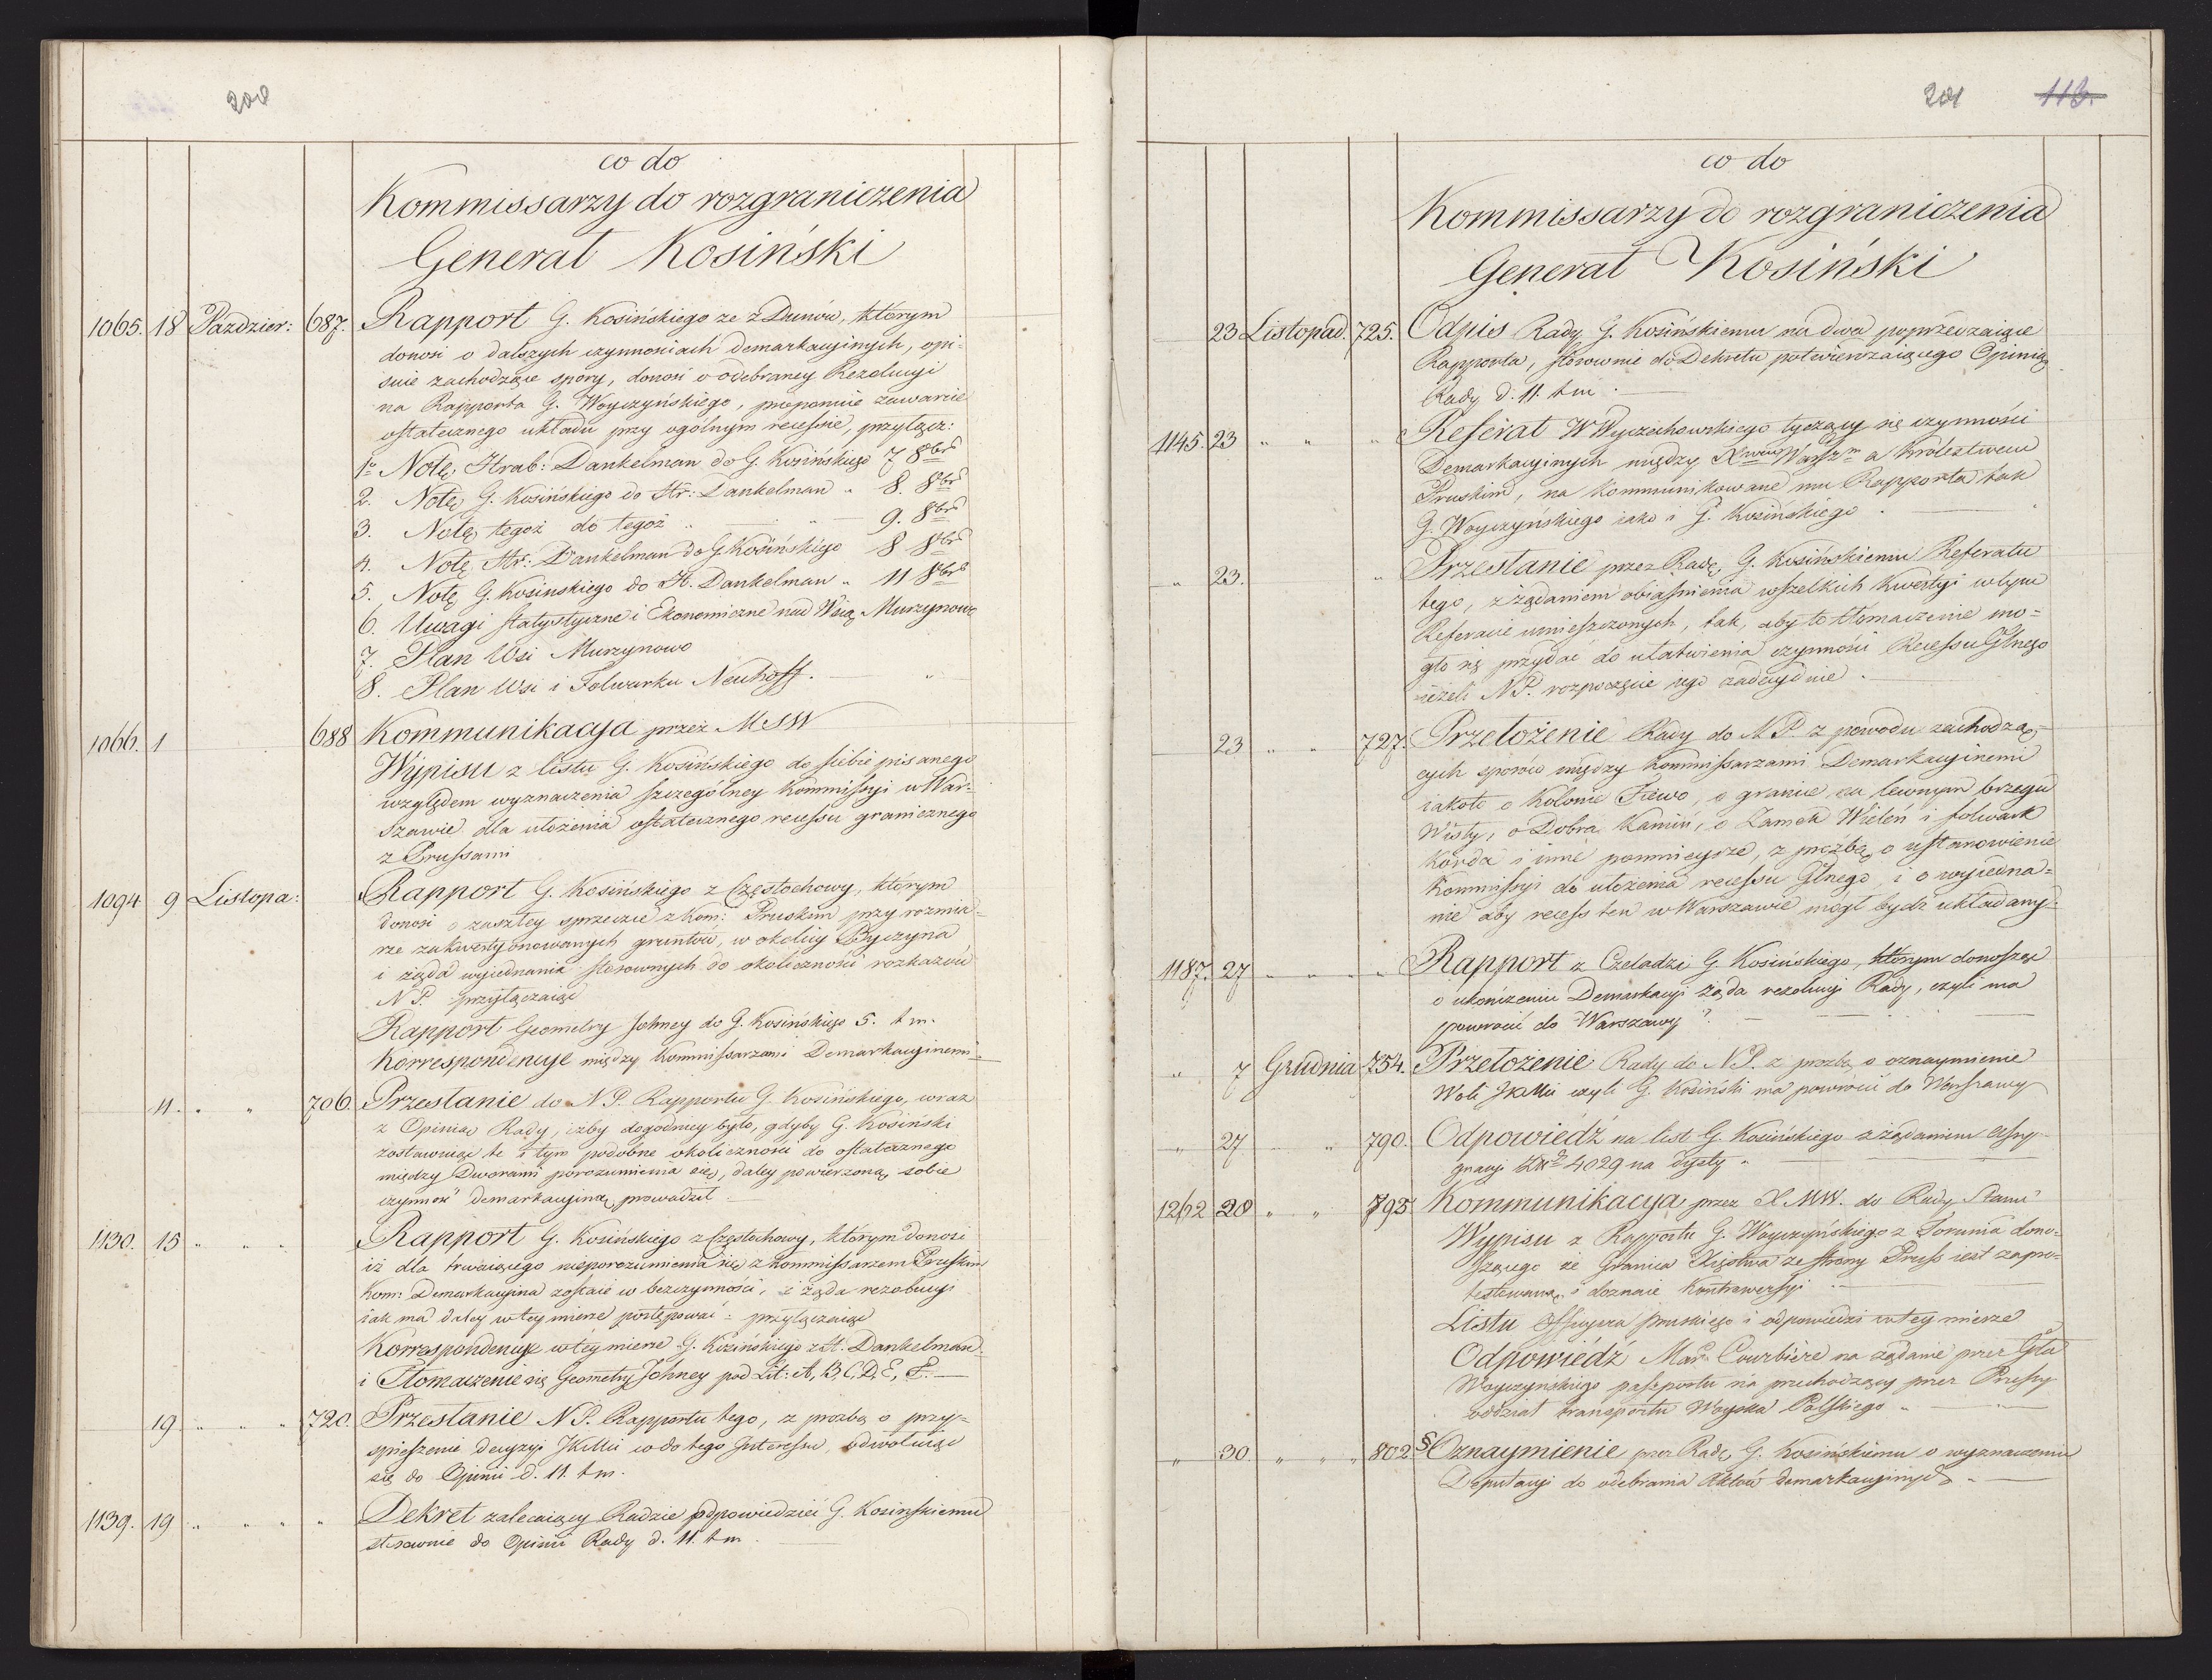 200
co do
Kommissarzy do rozgraniczenia
Generał Kosiński
1065. 18 Paździer: 687. Rapport G. Kosińskiego ze z Dunów, którym
donosi o dalszych czynnościach demarkacyinych, opi-
suie zachodzące spory, donosi o odebraney Rezolucyi
na Rapporta G. Woyczyńskiego, proponuie zawarcie
ostatecznego układu przy ogólnym recessie, przyłącz:
1o Notę, Hrab: Dankelman do G. Kosińskiego 7 8bra
2. Notę G. Kosińskiego do Hr: Dankelman " 8. 8bra
3. Notę tegoż do tegoż " " 9. 8bra
4. Notę Hr: Dankelman do G. Kosińskiego 8 8bra
5. Notę G. Kosinskiego do H. Dankelman " 11 8bra
6. Uwagi statystyczne i Ekonomiczne nad Wsią Murzynowo
7. Plan Wsi Murzynowo
8. Plan Wsi i Folwarku Neuhoff.
1066. 1 688 Kommunikacya przez MSW
Wypisu z listu G. Kosińskiego do siebie pisanego
względem wyznaczenia szczególney Kommissyi w War-
szawie dla ułożenia ostatecznego recessu granicznego
z Prussami
1094 9 Listopa: Rapport G. Kosińskiego z Częstochowy, którym
donosi o zaszłey sprzeczce z Kom: Pruskim przy rozmia-
rze zakwestyonowanych gruntów, w okolicy Byczyna
i żąda wyiednania stosownych do okoliczności rozkazów
NP. przyłączaiąc
Rapport Geometry Johney do G. Kosińskiego 5. t m.
Korrespondencye między Kommissarzami Demarkacyinemi
11. " " 706. Przesłanie do N.P. Rapportu G. Kosińskiego, wraz
z Opinią Rady, iżby dogodniey było, gdyby G. Kosiński
zostawuiąc te i tym podobne okoliczności do ostatecznego
między Dworami porozumienia się, daley powierzoną sobie
czynność demarkacyiną prowadził
1130. 15 " " " Rapport G. Kosińskiego z Częstochowy, którym donosi
iż dla trwaiącego nieporozumienia się z Kommissarzem Pruskim
Kom: Demarkacyina zostaie w bezczynności, i żąda rezolucyi
iak ma daley w tey mierze postępować - przyłączaiąc
Korrespondencye w tey mierze G. Kosińskiego z H. Dankelman
i Tłomaczenie się Geometry Johney pod Lit: A, B, C, D, E, F.
19 " " " 720. Przesłanie N.P. Rapportu tego, z prozbą o przy-
spieszenie decyzyi JKMci co do tego Interessu, odwołuiąc
się do Opinii d. 11. t m.
1139. 19 " " " " Dekret zalecaiący Radzie odpowiedzieć G. Kosinskiemu
stosownie do Opinii Rady d. 11. t m.
201 113.
co do
Kommissarzy do rozgraniczenia
Generał Kosiński
23 Listopad. 725. Odpis Rady G. Kosińskiemu na dwa poprzedzaiące
Rapporta, stosownie do Dekretu potwierdzaiącego Opinią
Rady d. 11. t m.
1145. 23 " " " Referat W Wyczechowskiego tyczący się czynności
Demarkacyinych między Xwem Warszm a Królestwem
Pruskim, na kommunikowane mu Rapporta tak
G. Woyczyńskiego iako i G. Kosińskiego.
" 23. " Przesłanie przez Radę G. Kosińskiemu Referatu
tego, z żądaniem obiaśnienia wszelkich kwestyi w tym
Referacie umieszczonych, tak, aby to tłomaczenie mo-
gło się przydać do ułatwienia czynności Recessu Głnego
ieżeli N.P. rozpoczęcie iego zadecyduie.
23 " " 727. Przełożenie Rady do N.P. z powodu zachodzą-
cych sporów między Kommissarzami Demarkacyinemi
iakoto o Kolonie Jewo, o granice na lewnym brzegu
Wisły, o Dobra Kamin, o Zamek Wieleń i folwark
Korda i inne pomnieysze, z prozbą o ustanowienie
Kommissyi do ułożenia recessu Głnego, i o wyiedna-
nie aby recess ten w Warszawie mógł bydź układany.
1187. 27 " " " " Rapport z Czeladzi G. Kosińskiego, którym donosząc
o ukończeniu Demarkacyi żąda rezolucyi Rady, czyli ma
powrócić do Warszawy?
" 7 Grudnia 754. Przełożenie Rady do N.P. z prozbą o oznaymienie
Woli JKMci czyli G. Kosiński ma powrócić do Warszawy
" 27 " 790. Odpowiedź na list G. Kosińskiego z żądaniem assy-
gnacyi 4029 na dyety "
1262 28 " " 795. Kommunikacya przez X MW. do Rady Stanu
Wypisu z Rapportu G. Woyczyńskiego z Torunia dono-
szącego że Granica Xięstwa ze strony Pruss iest zapro-
testowaną i doznaie kontrawersyi
Listu Officyera pruskiego i odpowiedzi w tey mierze
Odpowiedź Mar. Courbière na żądanie przez Gła
Woyczyńskiego paszportu na przechodzący przez Prussy
oddział transportu Woyska Polskiego "
" 30. " " " 802 § Oznaymienie przez Radę G. Kosińskiemu o wyznaczeniu
Deputacyi do odebrania Aktów demarkacyinych